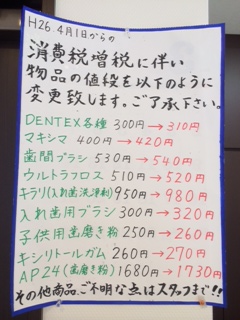 H26.4月1日からの
消費税増税に伴い
物品の値段を以下のように
変更致します。ご了承下さい。
DENTEX各種 300円→310円
マキシマ 400円→420円
歯間ブラシ 530円→540円
ウルトラフロス 510円→520円
キラリ(入れ歯洗浄剤)950円→980円
入れ歯用ブラシ 300円→320円
子供用歯磨き粉 250円→260円
キシリトールガム 260円→270円
AP24(歯磨き粉)1680円→1730円
その他商品、ご不明な点はスタッフまで!!